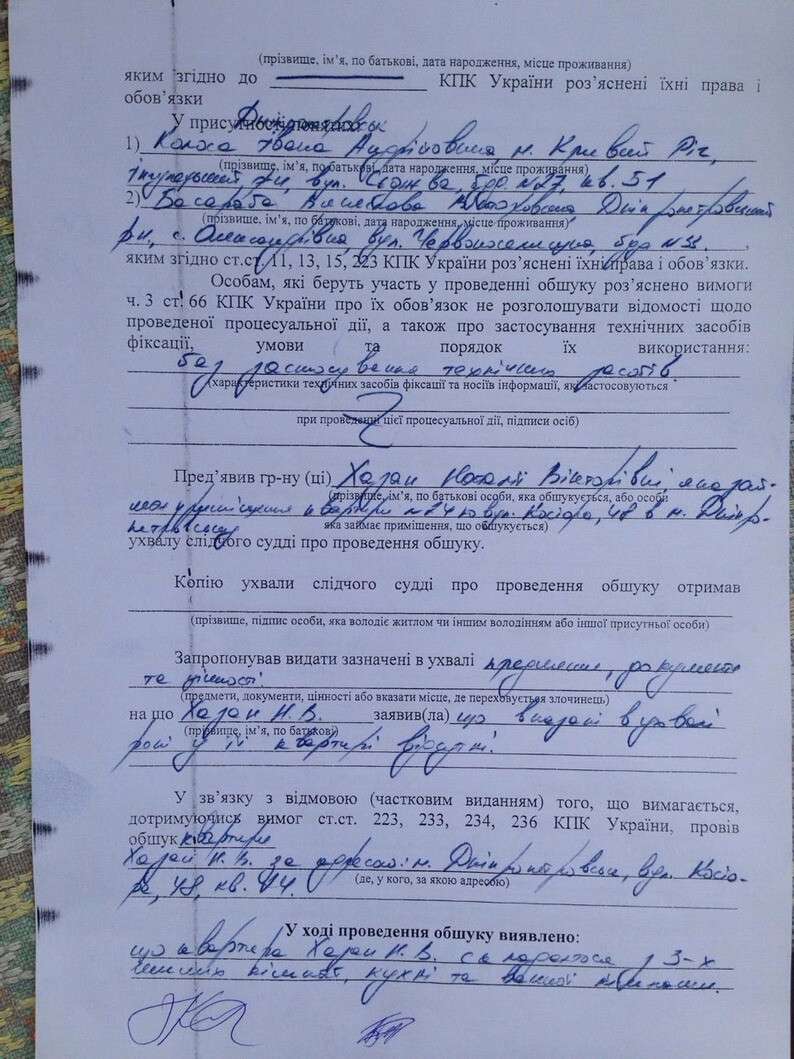 (прізвище, ім'я, по батькові, дата народження, місце проживання)
яким згідно до ______ КПК України роз'яснені їхні права і
обов'язки
У присутності понятих:
1) Колоса Івана Андрійовича, м. Кривий Ріг,
(прізвище, ім'я, по батькові, дата народження, місце проживання)
вул. буд. №27, кв. 51
2) Басараба Дніпропетровський
(прізвище, ім'я, по батькові, дата народження, місце проживання)
рн, с. Олександрівка, вул. буд №
яким згідно ст.ст. 11, 13, 15, 223 КПК України роз'яснені їхні права і обов'язки.
Особам, які беруть участь у проведенні обшуку роз'яснено вимоги
ч. 3 ст. 66 КПК України про їх обов'язок не розголошувати відомості щодо
проведеної процесуальної дії, а також про застосування технічних засобів
фіксації, умови та порядок їх використання:
без застосування технічних засобів
(характеристики технічних засобів фіксації та носіїв інформації, які застосовуються
при проведенні цієї процесуальної дії, підписи осіб)
Пред'явив гр-ну (ці) Хазан Наталії Вікторівні, яка зай-
(прізвище, ім'я, по батькові особи, яка обшукується, або особи
має приміщення квартири по вул. Косіора, 48 в м. Дніпро-
петровську яка займає приміщення, що обшукується)
ухвалу слідчого судді про проведення обшуку.
Копію ухвали слідчого судді про проведення обшуку отримав
(прізвище, підпис особи, яка володіє житлом чи іншим володінням або іншої присутньої особи)
Запропонував видати зазначені в ухвалі предмети, документи
та цінності
(предмети, документи, цінності або вказати місце, де переховується злочинець)
на що Хазан Н.В. заявив(ла) що вказані в ухвалі
(прізвище, ім'я, по батькові)
речі у її квартирі відсутні.
У зв'язку з відмовою (частковим виданням) того, що вимагається,
дотримуючись вимог ст.ст. 223, 233, 234, 236 КПК України, провів
обшук квартири
Хазан Н.В. за адресою: м. Дніпропетровськ, вул. Косіо-
ра, 48, кв. 44.
(де, у кого, за якою адресою)
У ході проведення обшуку виявлено:
що квартира Хазан Н.В. складається з 3-х
кімнат, кухні та ванної кімнати.